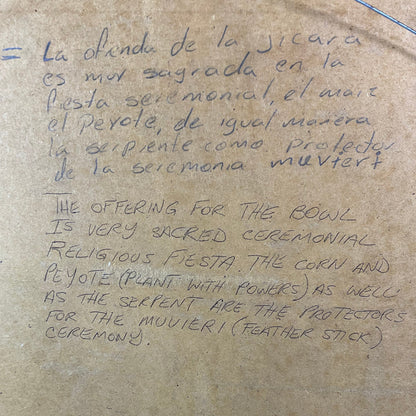 = La ofenda de la jicara
es muy sagrada en la
fiesta seremonial, el maiz
el Peyote, de igual maniera
la serpiente como protector
de la seremonia muvieri
THE OFFERING FOR THE BOWL
IS VERY SACRED CEREMONIAL
RELIGIOUS FIESTA. THE CORN AND
PEYOTE (PLANT WITH POWERS) AS WELL
AS THE SERPENT ARE THE PROTECTORS
FOR THE MUVIERI (FEATHER STICK)
CEREMONY.